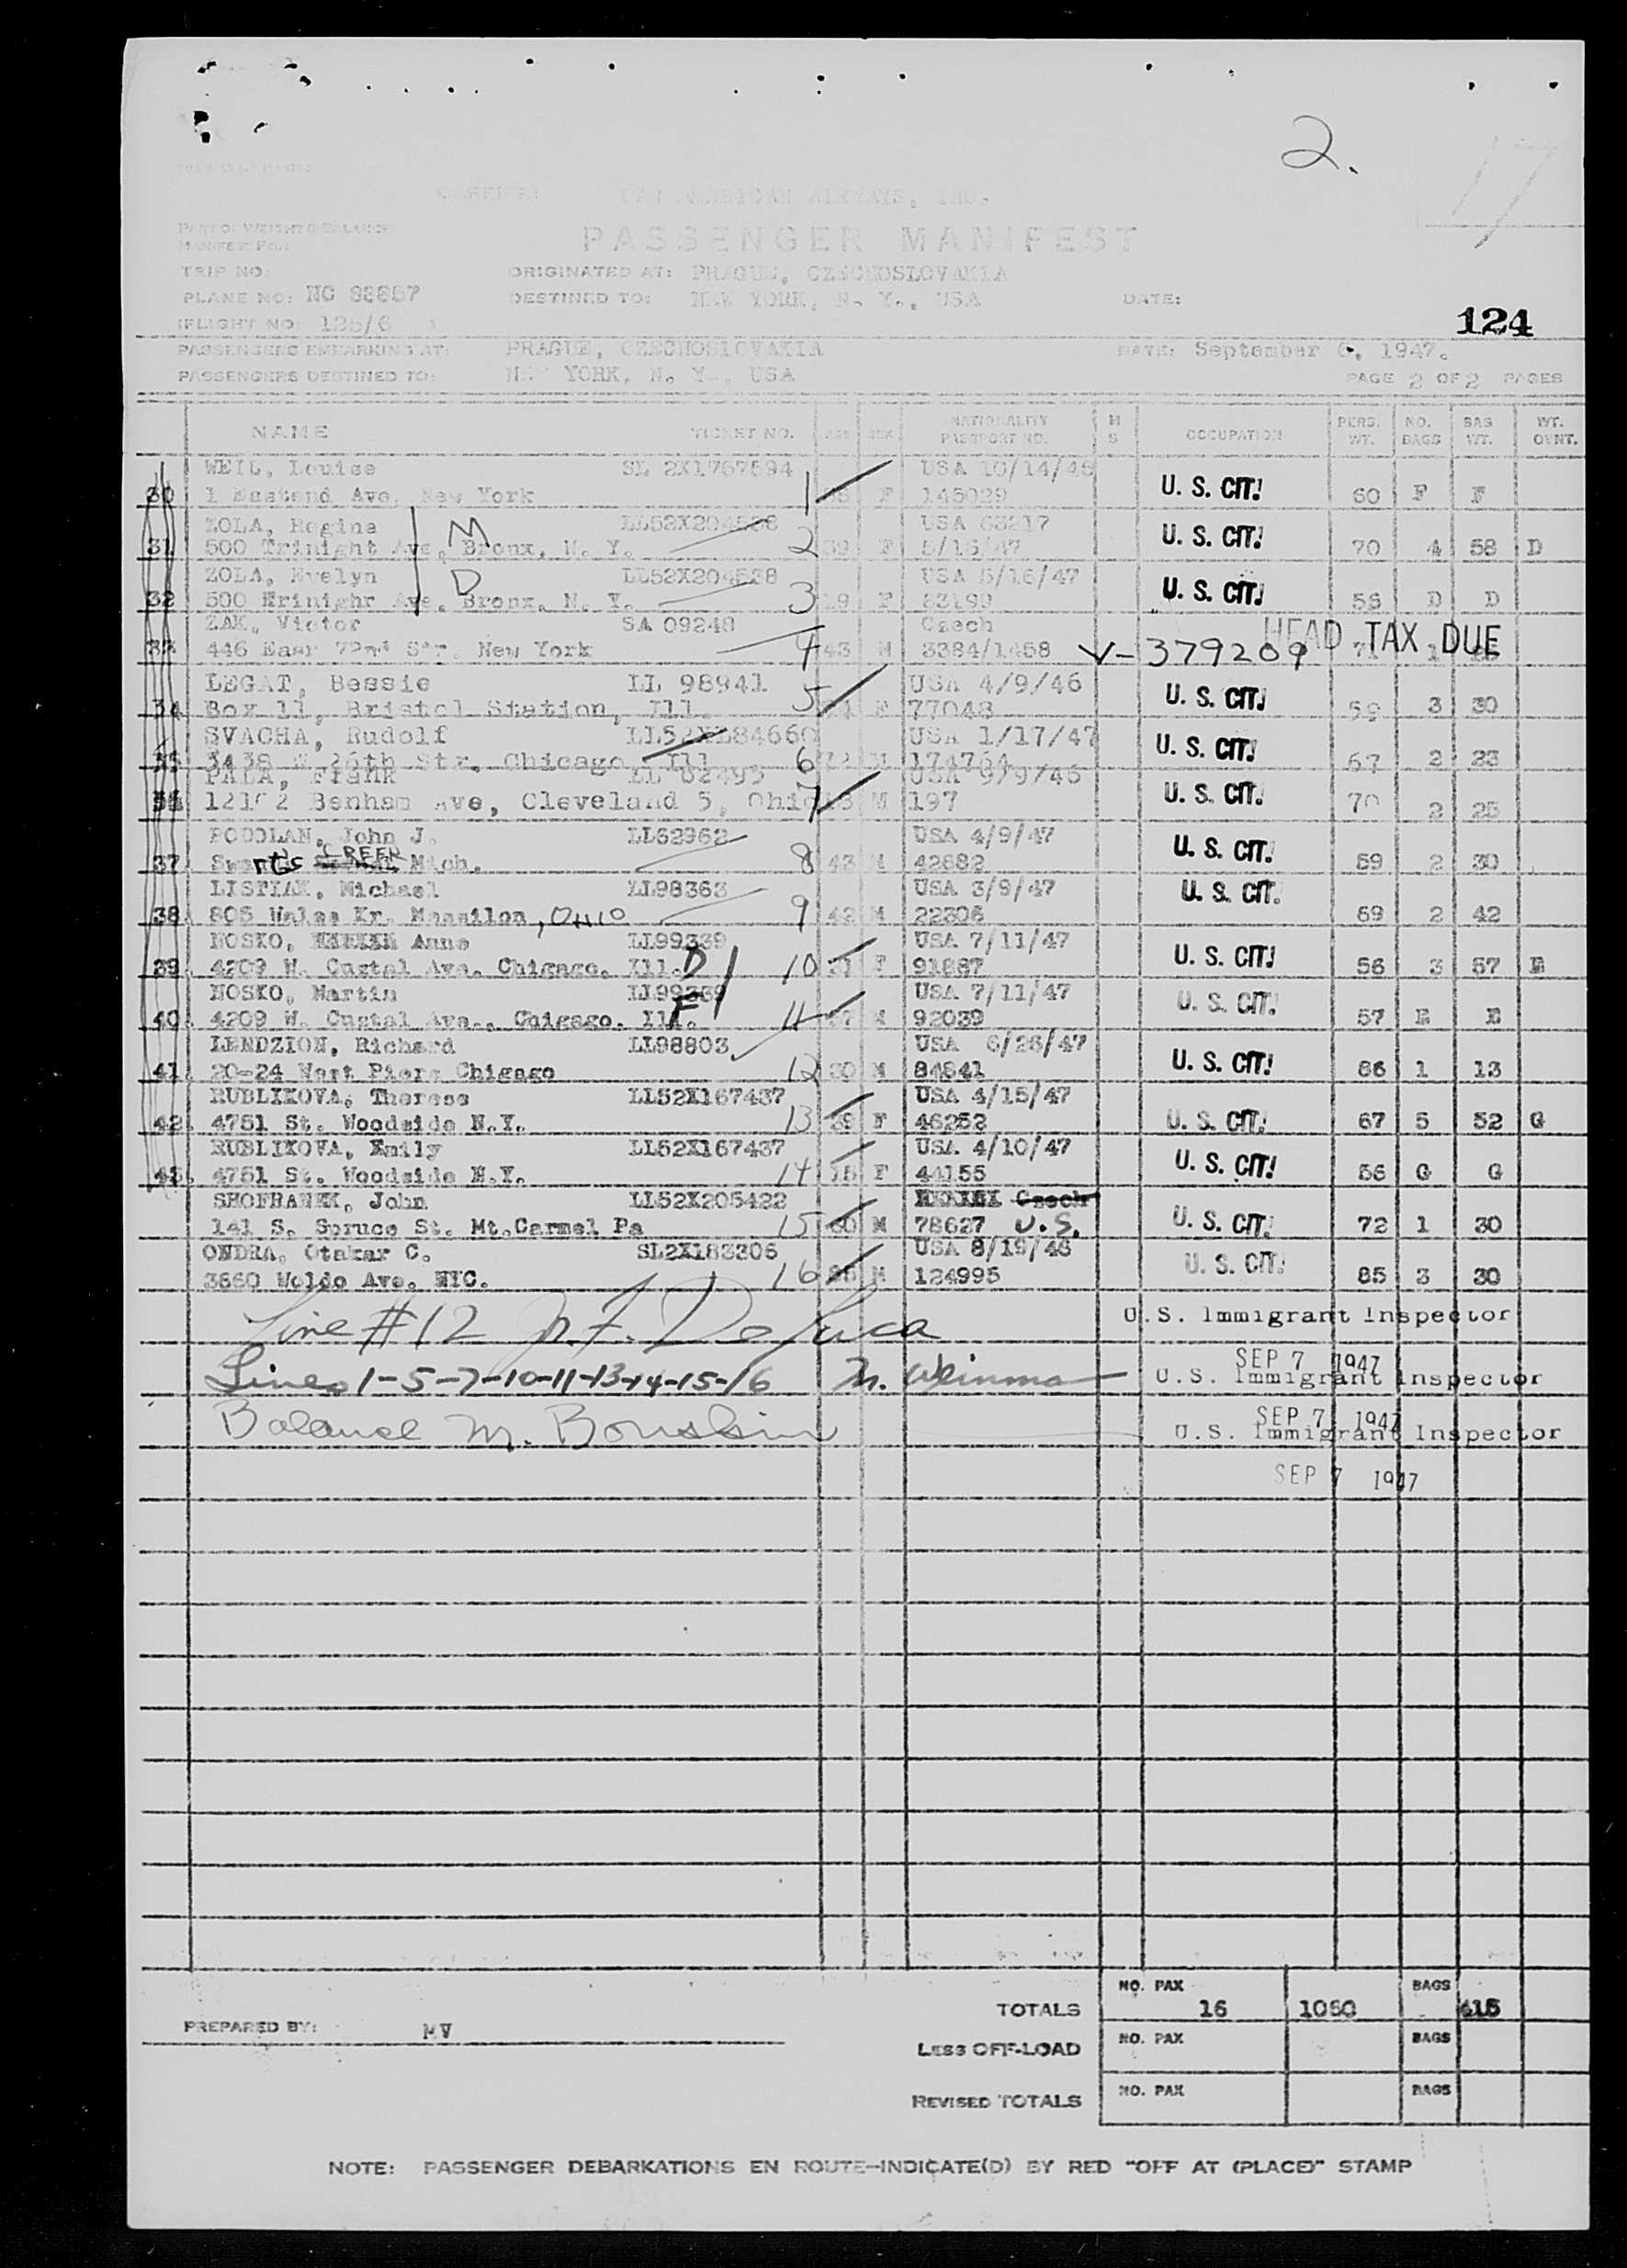 2.
17
CARRIER: PAN AMERICAN AIRWAYS, INC.
PART OF WEIGHT & BALANCE
MANIFEST FOR:
PASSENGER MANIFEST
TRIP NO.
ORIGINATED AT: PRAGUE, CZECHOSLOVAKIA
PLANE NO: NC 88857
DESTINED TO: NEW YORK, N. Y., USA DATE:
(FLIGHT NO: 125/6 )
124
PASSENGERS EMBARKING AT: PRAGUE, CZECHOSLOVAKIA DATE: September 6, 1947.
PASSENGERS DESTINED TO: NEW YORK, N. Y., USA PAGE 2 OF 2 PAGES
NAME TICKET NO. AGE SEX NATIONALITY PASSPORT NO. M S OCCUPATION PERS. WT. NO. BAGS BAG WT. WT. OVNT.
WEIL, Louise SL 2X1767594 USA 10/14/46
30 1 Eastend Ave, New York 1 F 145029 U. S. CIT. 60 F F
ZOLA, Regina LL52X204538 USA 63217
31 500 Trinight Ave, Bronx, N. Y. M 2 39 F 5/16/47 U. S. CIT. 70 4 58 D
ZOLA, Evelyn LL52X204538 USA 5/16/47
32 500 Erinighr Ave. Bronx. N. Y. D 3 19 F 63199 U. S. CIT. 56 D D
ZAK, Victor SA 09248 Czech HEAD TAX DUE
33 446 Easr 72nd Str. New York 4 43 M 3384/1468 V-379209 71 1
LEGAT, Bessie LL 98941 USA 4/9/46
34 Box 11, Bristol Station, Ill. 5 F 77048 U. S. CIT. 59 3 30
SVACHA, Rudolf LL52X184660 USA 1/17/47
35 3438 W 26th Str. Chicago Ill 6 72 M 174764 U. S. CIT. 67 2 23
PALA, Frank LL 62495 USA 9/9/46
36 12102 Benham Ave, Cleveland 5, Ohio 7 M 197 U. S. CIT. 70 2 25
PODOLAN, John J. LL62962 USA 4/9/47
37 Swartz CREEK Mich. 8 43 M 42682 U. S. CIT. 59 2 30
LISTIAK, Michael LL98363 USA 3/9/47
38 805 Wales Kr. Massilon, OHIO 9 42 M 22306 U. S. CIT. 69 2 42
NOSKO, Anna LL99339 USA 7/11/47
39. 4209 W. Custal Ave. Chigago. Ill. D 10 21 F 91887 U. S. CIT. 56 3 57 E
NOSKO, Martin LL99339 USA 7/11/47
40. 4209 W. Custal Ave., Chigago. Ill. F 11 M 92039 U. S. CIT. 57 E E
LENDZION, Richard LL98803 USA 6/26/47
41. 20-24 Wart Piers Chigago 12 30 M 84841 U. S. CIT. 86 1 13
RUBLIKOVA, Therese LL52X167437 USA 4/15/47
42. 4751 St. Woodside N.Y. 13 39 F 46252 U. S. CIT. 67 5 52 G
RUBLIKOVA, Emily LL52X167437 USA 4/10/47
43. 4751 St. Woodside N.Y. 14 15 F 44155 U. S. CIT. 56 G G
SHOFRANEK, John LL52X205422 Czech
141 S. Spruce St. Mt.Carmel Pa 15 60 M 78627 U.S. U. S. CIT. 72 1 30
ONDRA, Otakar C. SL2X183306 USA 8/19/46
3660 Waldo Ave. NYC. 16 M 124995 U. S. CIT. 85 3 30
Line #12 M. F. DeLuca U.S. Immigrant Inspector
SEP 7 1947
Lines 1-5-7-10-11-13-14-15-16 M. Weinman U.S. Immigrant Inspector
SEP 7 1947
Balance M. U.S. Immigrant Inspector
SEP 7 1947
TOTALS NO. PAX 16 1060 BAGS 415
PREPARED BY: MV
LESS OFF-LOAD NO. PAX BAGS
REVISED TOTALS NO. PAX BAGS
NOTE: PASSENGER DEBARKATIONS EN ROUTE-INDICATE(D) BY RED "OFF AT (PLACE)" STAMP